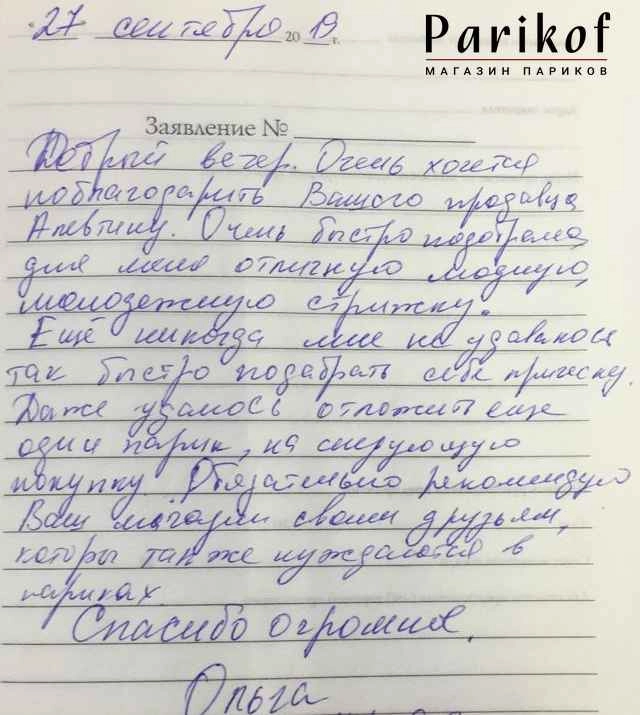 27 сентября 2019 г.
Parikof
МАГАЗИН ПАРИКОВ
Заявление №
Добрый вечер. Очень хочется
поблагодарить Вашего продавца
Алевтину. Очень быстро подобрала
для меня отличную модную,
молодежную стрижку.
Ещё никогда мне не удавалось
так быстро подобрать себе прическу.
Даже удалось отложить еще
один парик, на следующую
покупку. Обязательно рекомендую
Ваш магазин своим друзьям,
которы также нуждаются в
париках.
Спасибо огромное.
Ольга